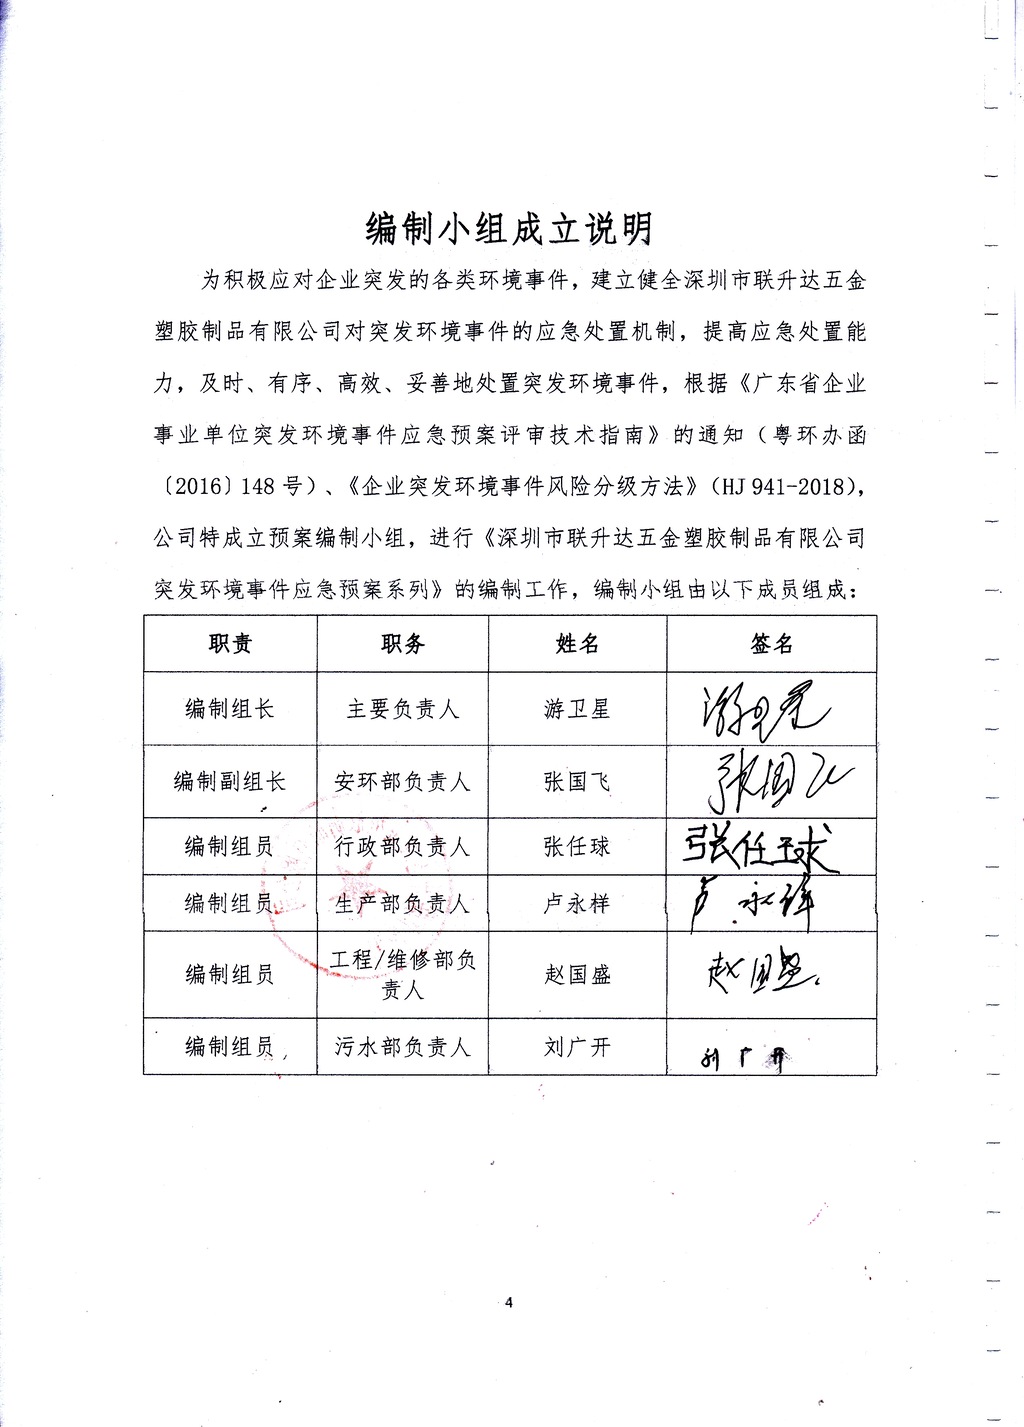 编制小组成立说明
为积极应对企业突发的各类环境事件，建立健全深圳市联升达五金
塑胶制品有限公司对突发环境事件的应急处置机制，提高应急处置能
力，及时、有序、高效、妥善地处置突发环境事件，根据《广东省企业
事业单位突发环境事件应急预案评审技术指南》的通知（粤环办函
〔2016〕148号）、《企业突发环境事件风险分级方法》（HJ 941-2018），
公司特成立预案编制小组，进行《深圳市联升达五金塑胶制品有限公司
突发环境事件应急预案系列》的编制工作，编制小组由以下成员组成：
职责 职务 姓名 签名
编制组长 主要负责人 游卫星 游卫星
编制副组长 安环部负责人 张国飞 张国飞
编制组员 行政部负责人 张任球 张任球
编制组员 生产部负责人 卢永样 卢永样
编制组员 工程/维修部负
责人 赵国盛 赵国盛
编制组员 污水部负责人 刘广开 刘广开
4